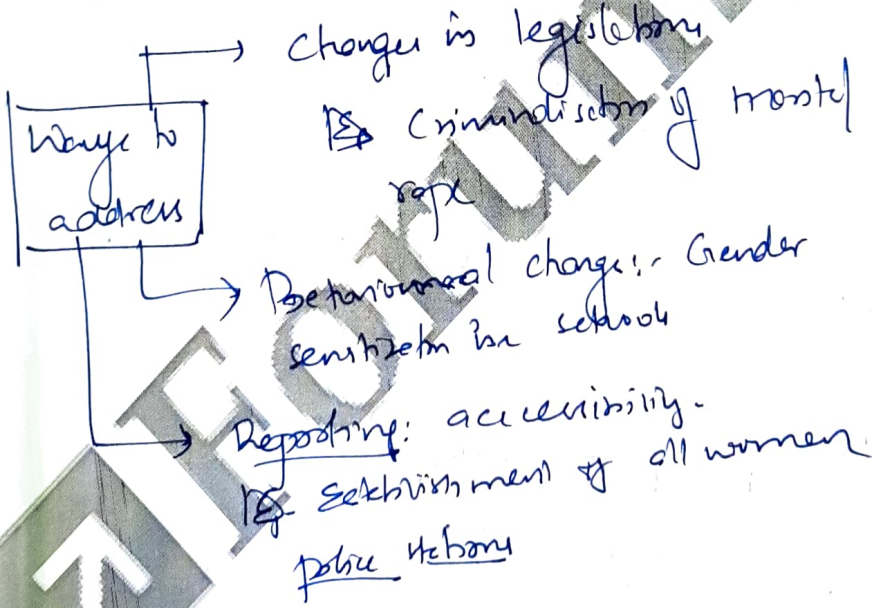 Changes in legislations
Ways to
address
Eg Criminalisation of marital
rape
Behavioural change:- Gender
sensitization in schools
Reporting: accessibility.
Eg. Establishment of all women
police stations
Forum